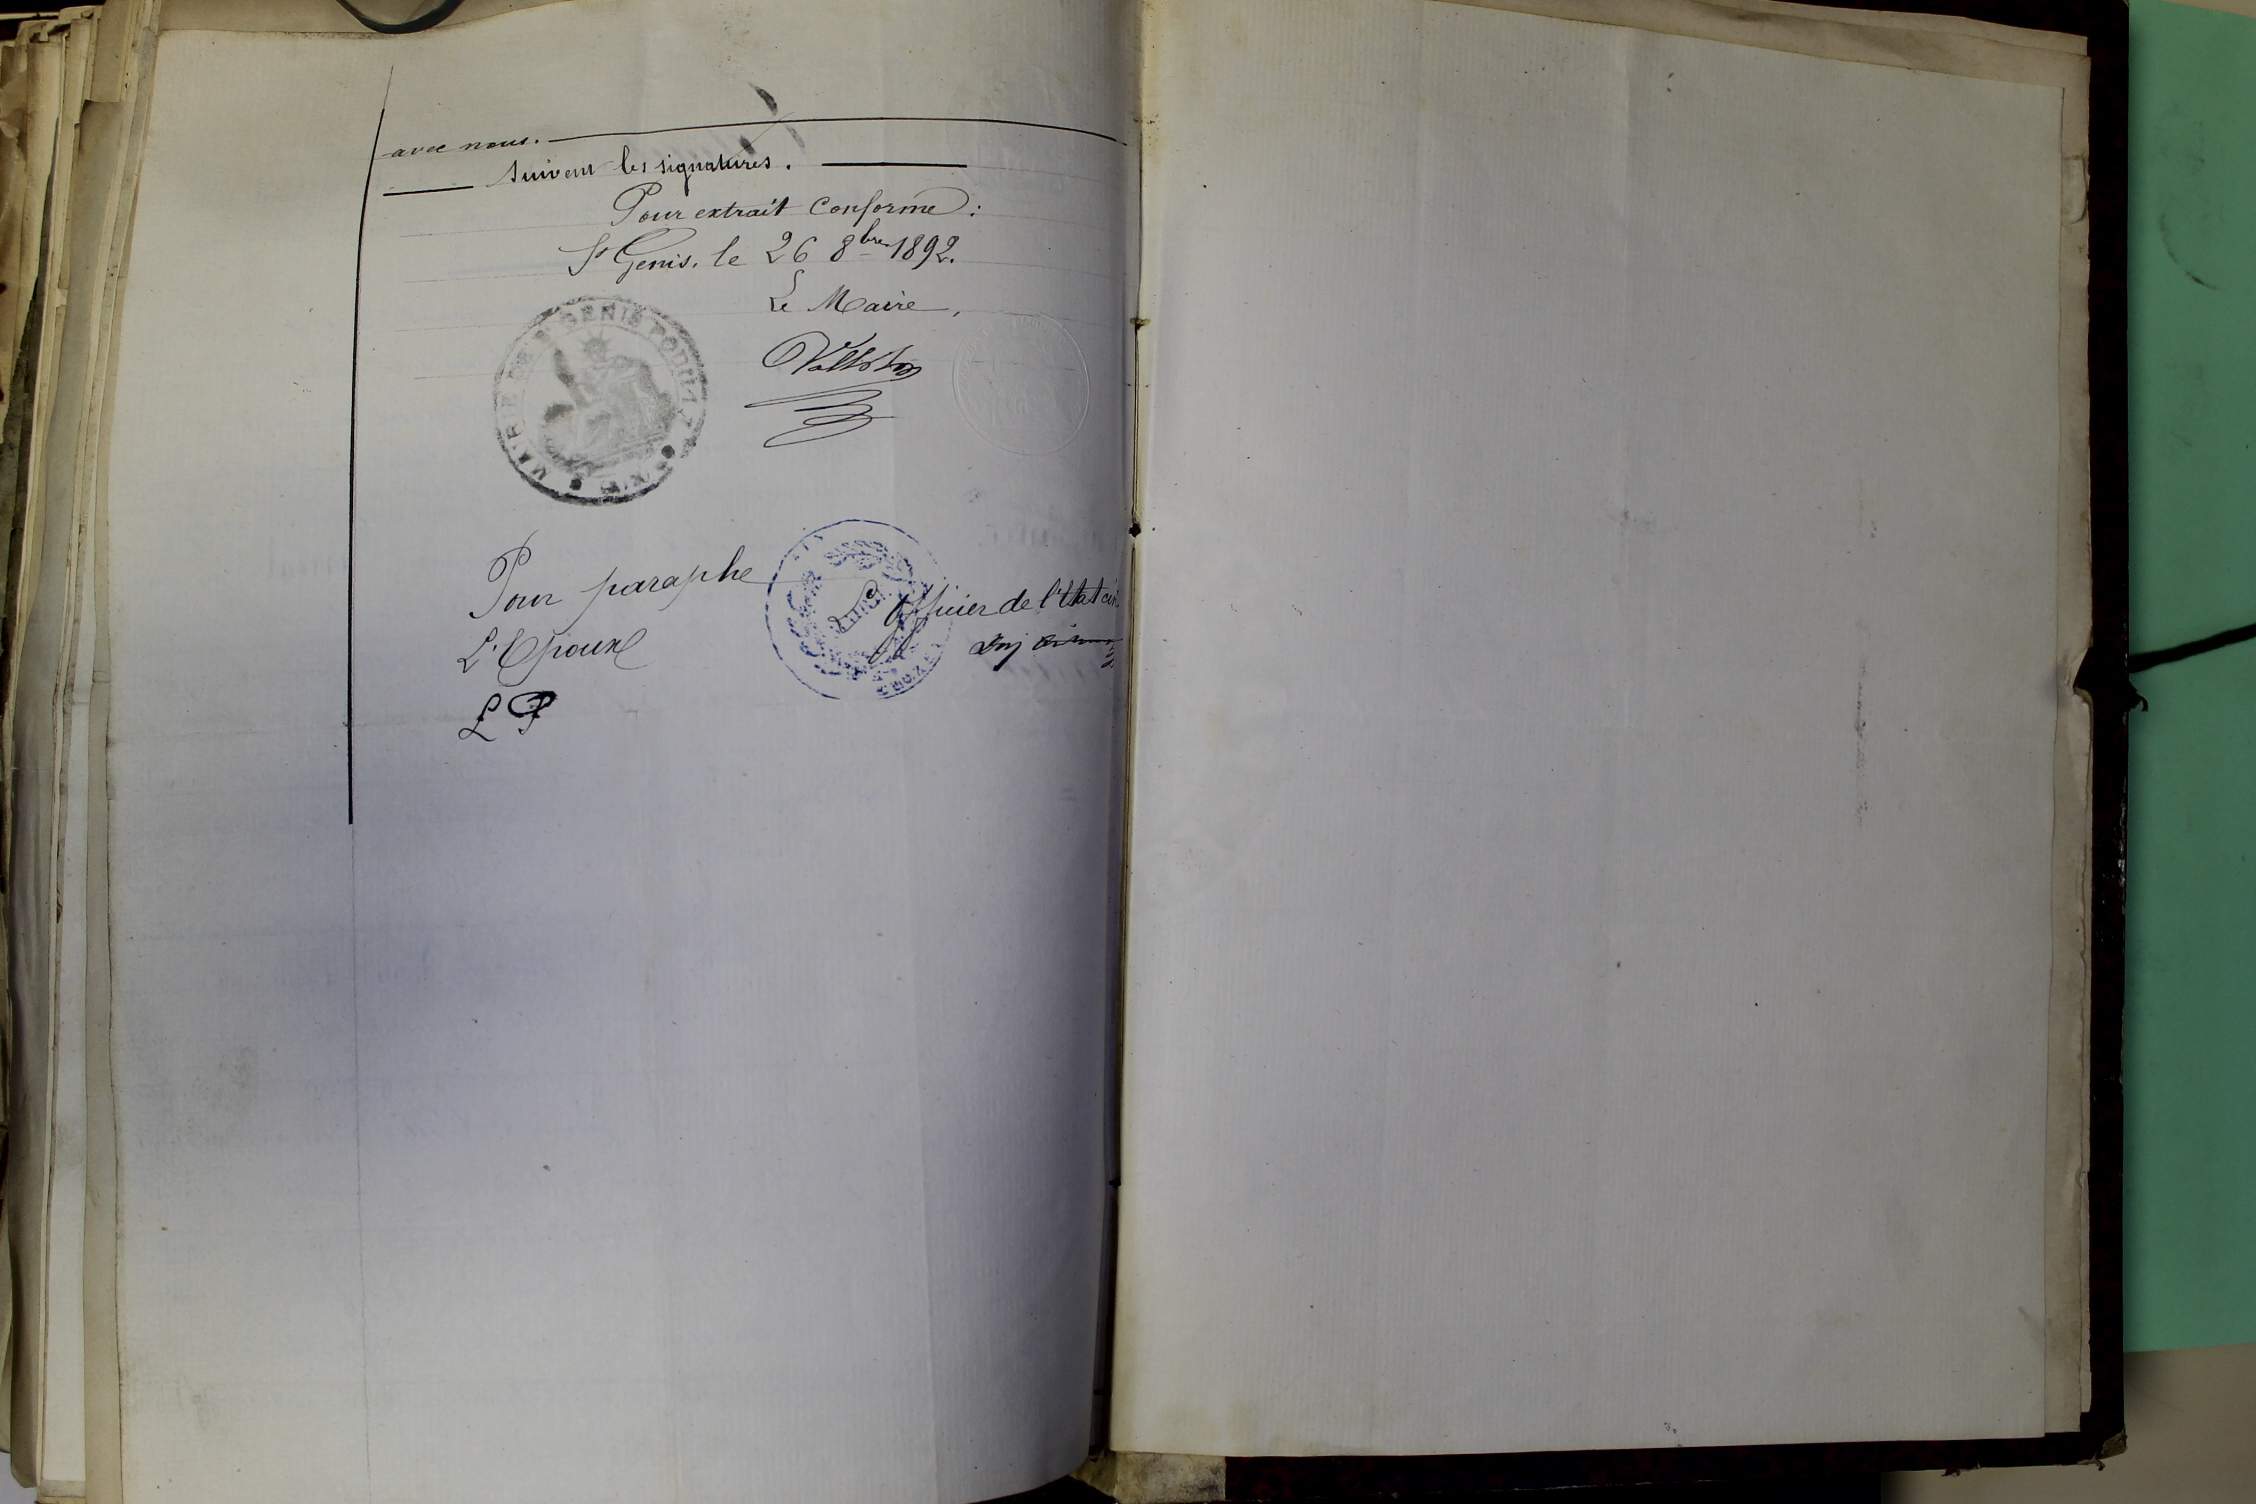 avec nous.
Suivent les signatures.
Pour extrait Conforme :
St Genis, le 26 8bre 1892.
Le Maire,
MAIRIE DE ST GENIS POUILLY
Pour paraphe
L'Epoux
L P
L'officier de l'Etat civ